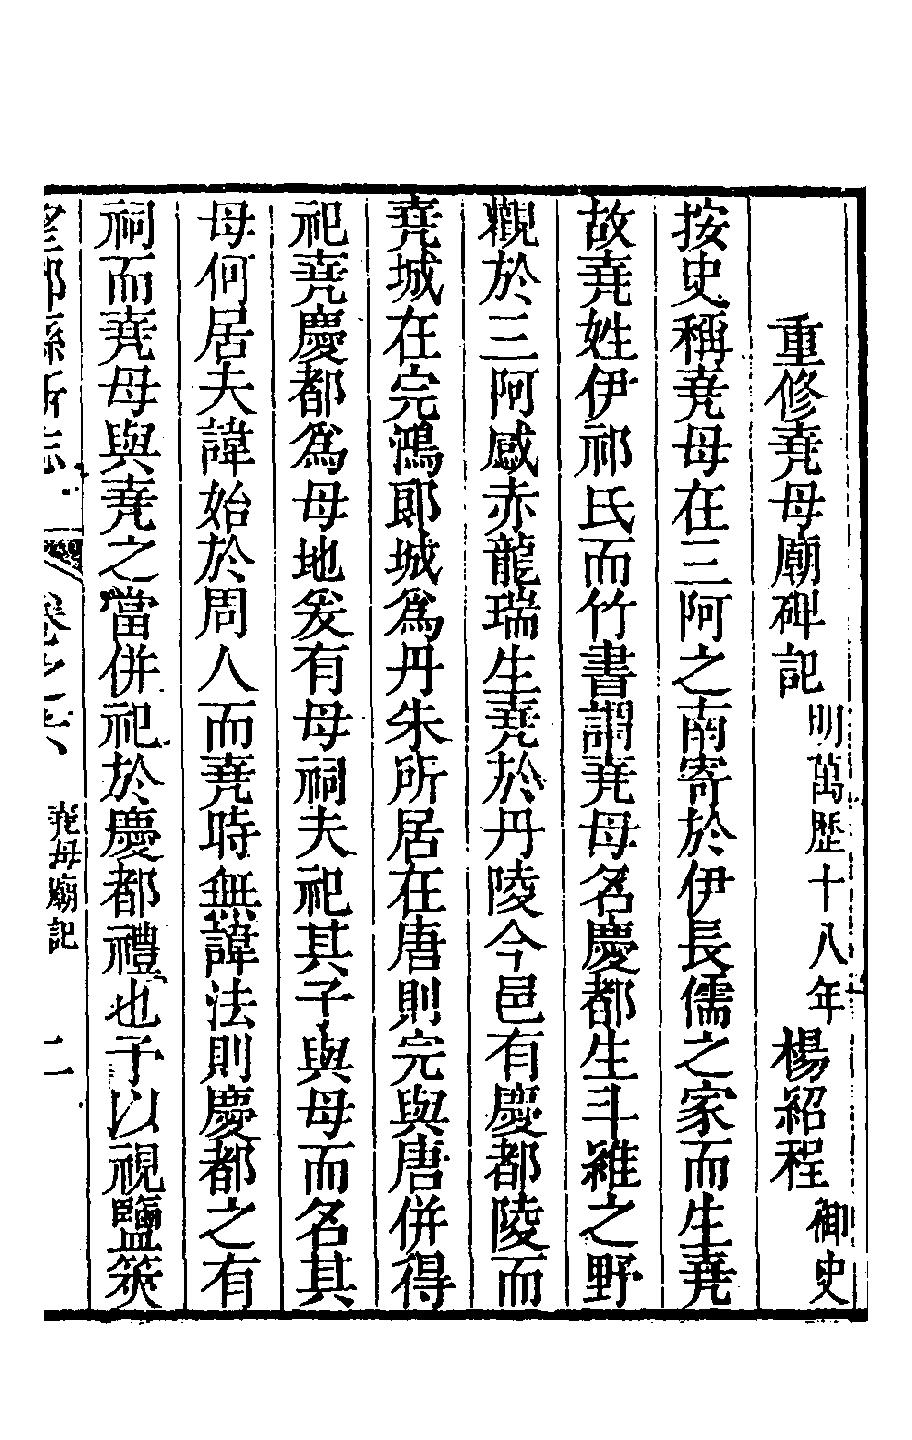 重修堯母廟碑記 明萬歷十八年 楊紹程 御史
按史稱堯母在三阿之南寄於伊長儒之家而生堯
故堯姓伊祁氏而竹書謂堯母名慶都生斗維之野
觀於三阿感赤龍瑞生堯於丹陵今邑有慶都陵而
堯城在完鴻郎城為丹朱所居在唐則完與唐併得
祀堯慶都為母地爰有母祠夫祀其子與母而名其
母何居夫諱始於周人而堯時無諱法則慶都之有
祠而堯母與堯之當併祀於慶都禮也予以視鹽筴
望都縣新志 卷之八 堯母廟記 二